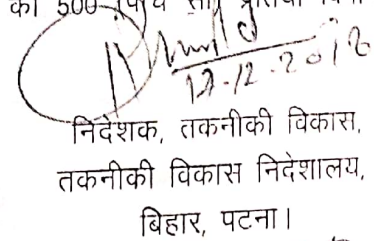 की 500
12.12.2012
निदेशक, तकनीकी विकास,
तकनीकी विकास निदेशालय,
बिहार, पटना।